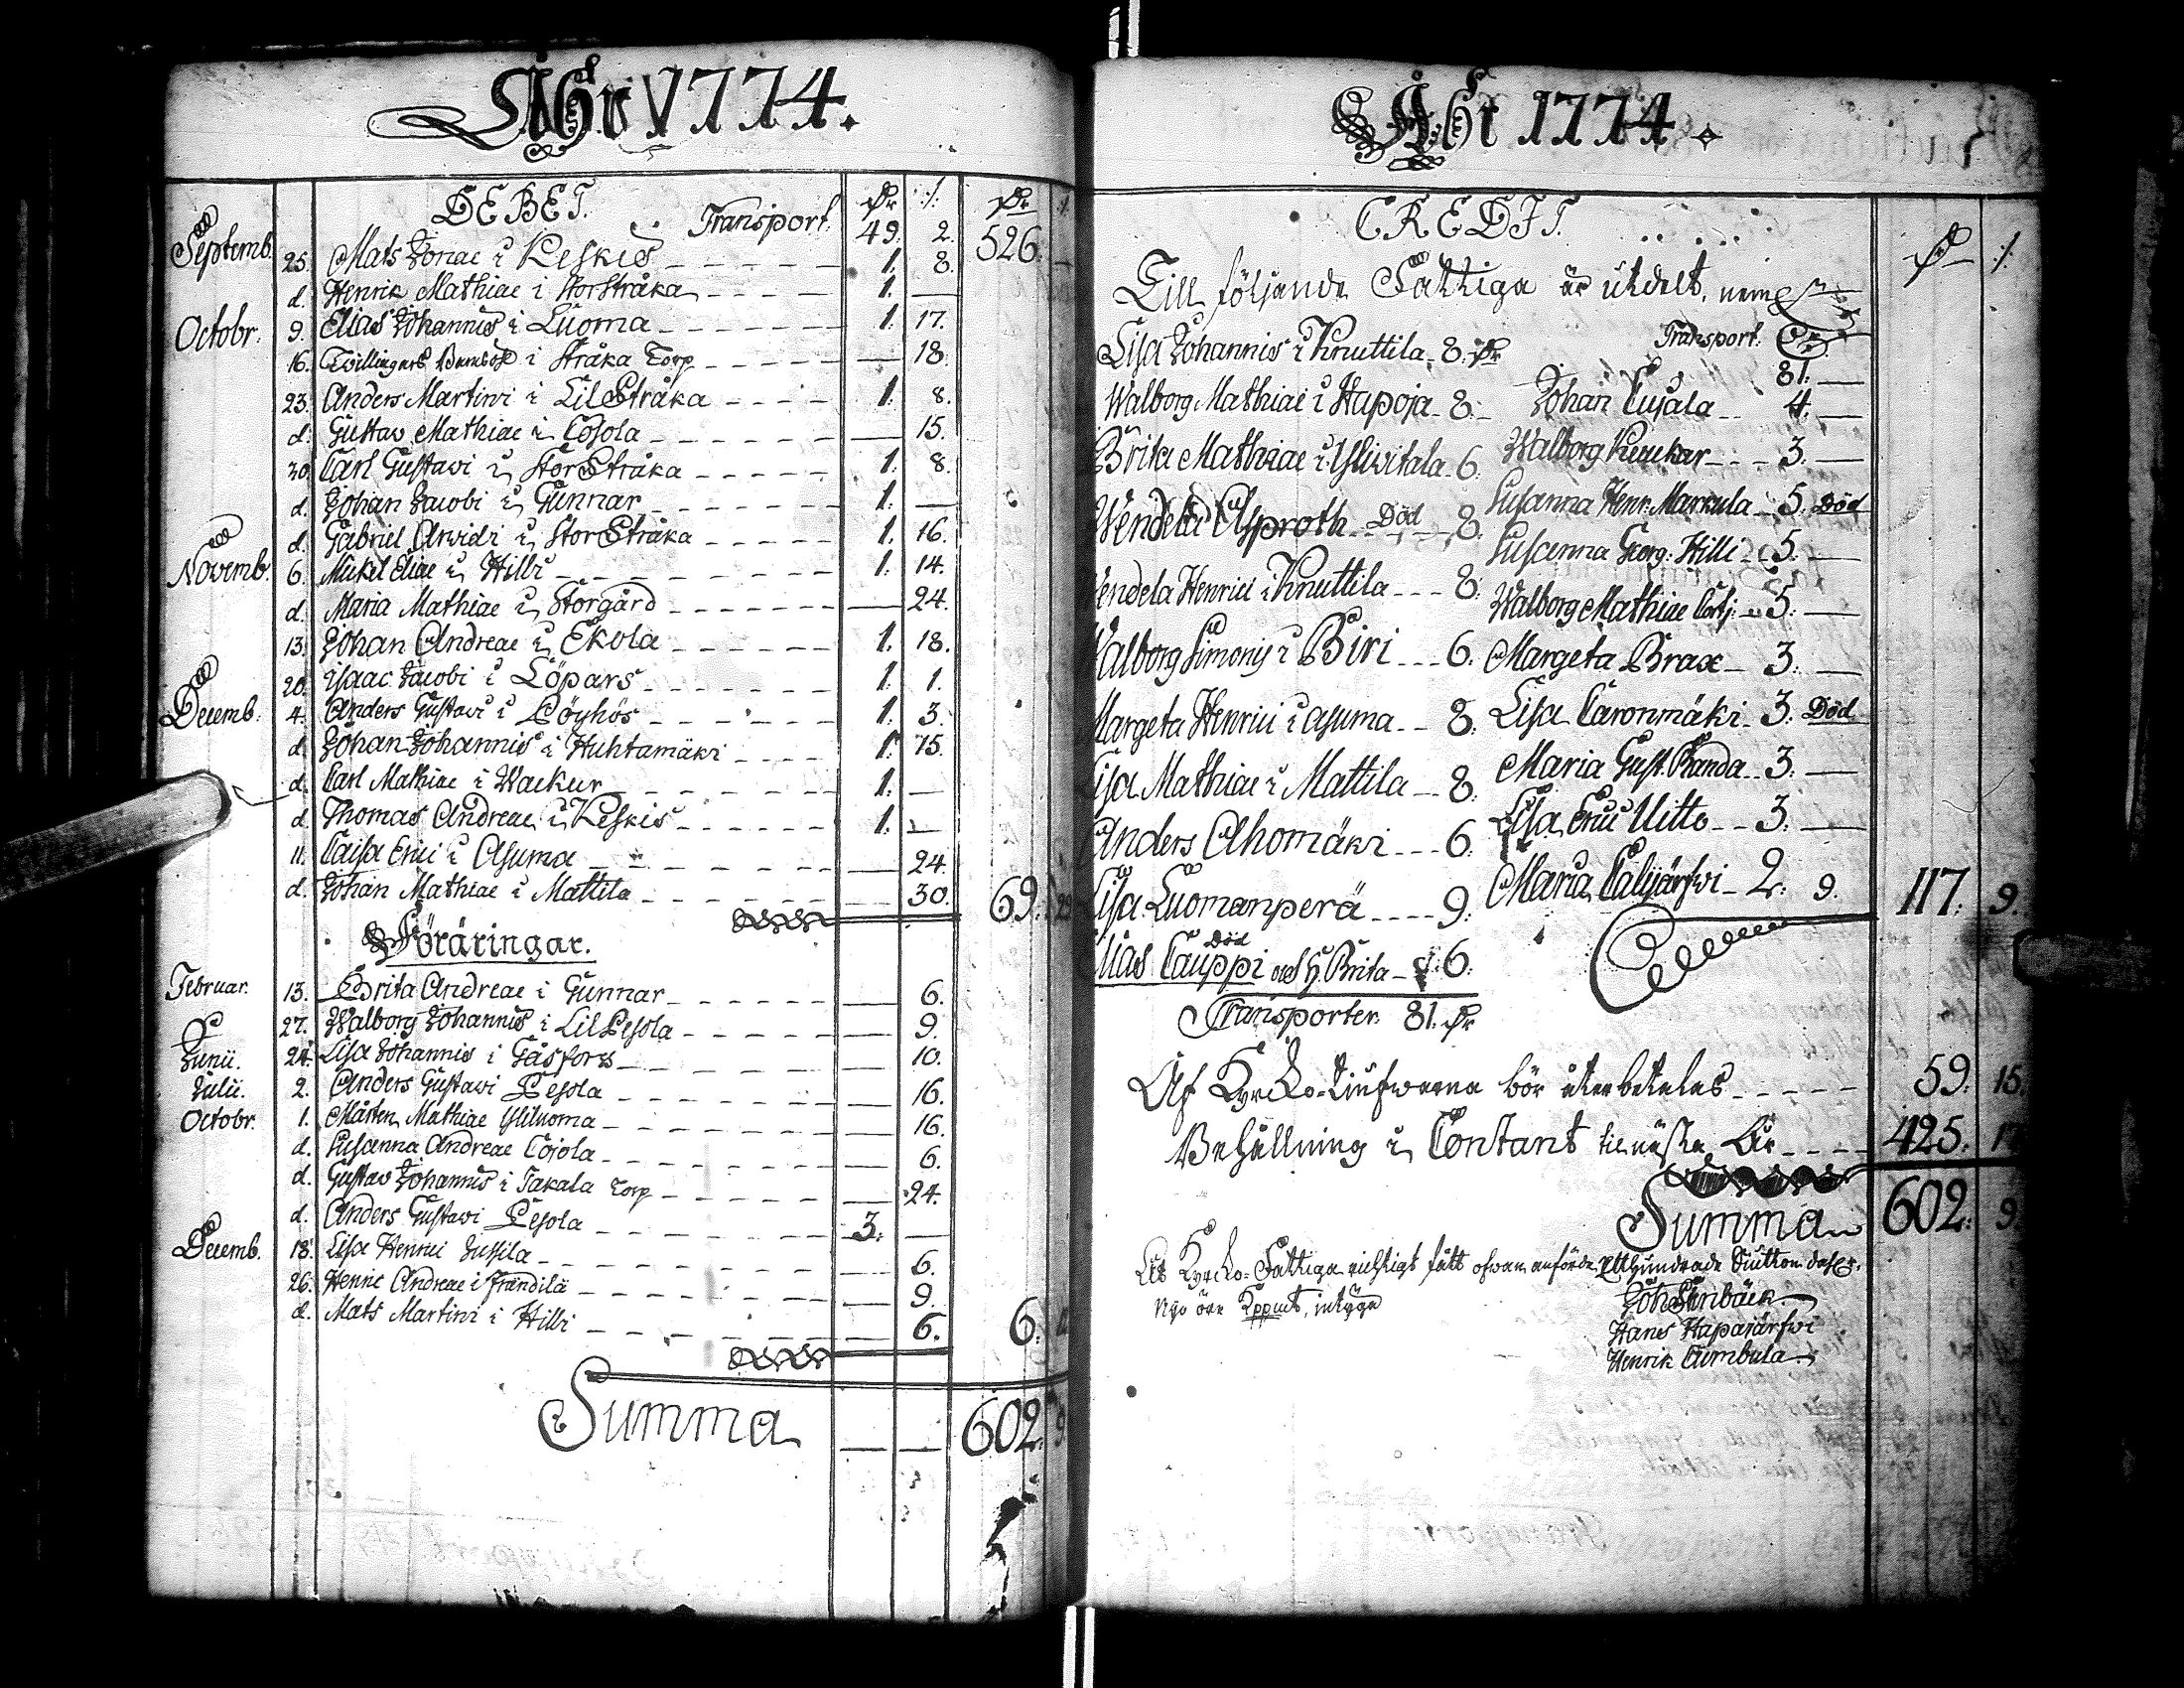 Åhr 1774.
DEBET.
Transport. 49. 2. 526.
Septemb. 25. Mats Jonae i Keskis 1. 8.
d. Henrik Mathiae i StorStråka 1. —
Octobr. 9. Elias Johannis i Luoma 1. 17.
16. Twillingars i Stråka Torp — 18.
23. Anders Martini i LilStråka 1. 8.
d. Gustav Mathiae i Cojola — 15.
30. Carl Gustavi i StorStråka 1. 8.
d. Johan Jacobi i Gunnar 1. —
d. Gabriel Arvidi i StorStråka 1. 16.
Novemb. 6. Mickel Eliae i Hilli 1. 14.
d. Maria Mathiae i Storgård — 24.
13. Johan Andreae i Ekola 1. 18.
20. Isaac Jacobi i Löpars 1. 1.
Decemb. 4. Anders Gustavi i Löyhös 1. 3.
d. Johan Johannis i Huhtamäki 1. 15.
d. Carl Mathiae i Wackur 1. —
d. Thomas Andreae i Keskis 1. —
11. Caisa Erici i Asuma — 24.
d. Johan Mathiae i Mattila — 30. 69. 29
Föräringar.
Februar. 13. Brita Andreae i Gunnar — 6.
27. Walborg Johannis i LilPesola — 9.
Junii. 24. Lisa Johannis i Gåsfors — 10.
Julii. 2. Anders Gustavi Pesola — 16.
Octobr. 1. Mårten Mathiae Yliluoma — 16.
d. Susanna Andreae Cojola — 6.
d. Gustav Johannis i Takala Torp — 24.
d. Anders Gustavi Pesola 3. —
Decemb. 18. Lisa Henrici Jussila — 6.
26. Henric Andreae i Frändilä — 9.
d. Mats Martini i Hilli — 6. 6.
Summa — — 602. 9.
Åhr 1774.
CREDIT.
Till följande Fattiga är utdelt, neml
Lisa Johannis i Knuttila 8.
Walborg Mathiae i Hapoja 8.
Brita Mathiae i Yliwitala 6.
Wendela Asproth Död 8.
Wendela Henrici i Knuttila 8.
Walborg Simonis i Biri 6.
Margeta Henrici i Asuma 8.
Lisa Mathiae i Mattila 8.
Anders Ahomäki 6.
Lisa Luomanperä 9.
Död
Elias Cauppi och H. Brita 6.
Transporter 81.
Transport.
81. —
Johan Cujala 4. —
Walborg Kuckar 3. —
Susanna Henr. Markula 5. Död
Susanna Georg: Hilli 5. —
Walborg Mathiae 5. —
Margeta Brax 3. —
Lisa Caronmäki 3. Död
Maria Gust. Randa 3. —
Lisa Erici Uitto 3. —
Maria Calijärfwi 2. 9. 117. 9.
Af Kyrcko-Diufwarna bör återbetalas 59. 15.
Behållning i Contant til nästa År 425. 17
Summa 602. 9.
Att Kyrcko-Fattiga richtigt fått ofwan anförde Etthundrade Siutton daler,
Nijo öre Kppmt, intyga
Joh Simbäck
Hans Hapajärfwi
Henrik Cumbula